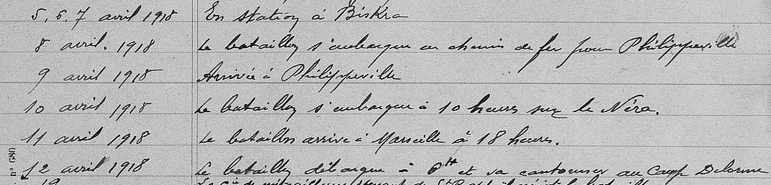 5, 6, 7 avril 1918 En station à Biskra
8 avril. 1918 Le bataillon s'embarque en chemin de fer pour Philippeville
9 avril 1918 Arrivée à Philippeville
10 avril 1918 Le bataillon s'embarque à 10 heures sur le Néra.
11 avril 1918 Le bataillon arrive à Marseille à 18 heures.
12 avril 1918 Le bataillon débarque à 6h et va cantonner au Camp Delorme